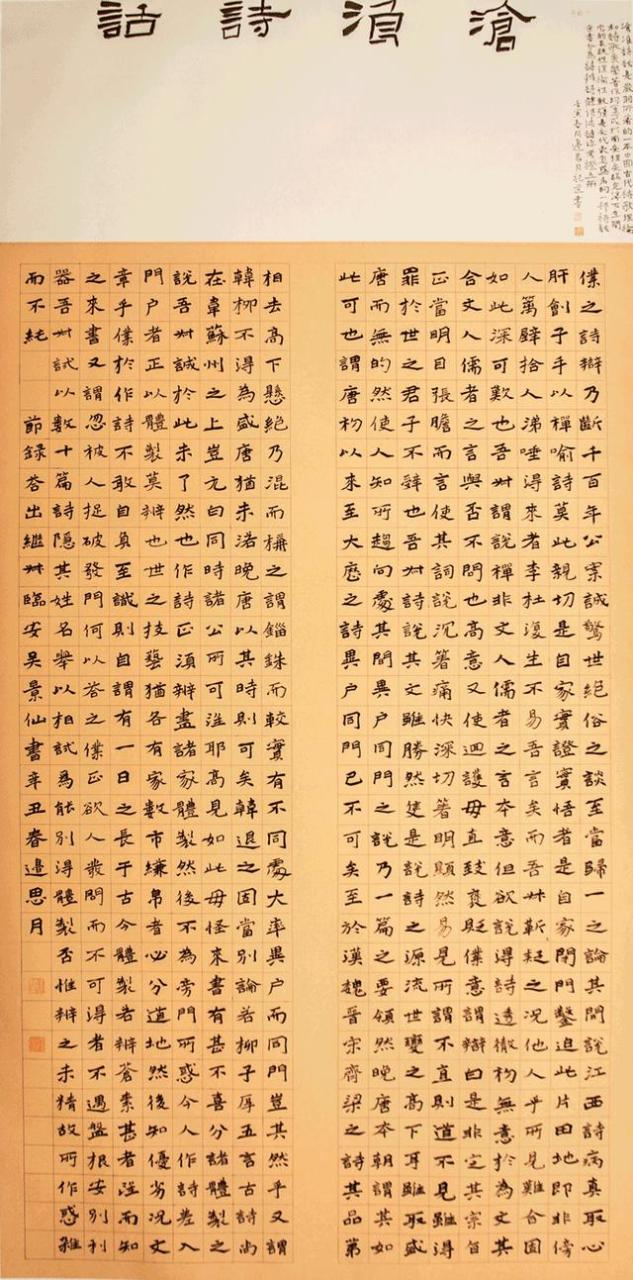 滄浪詩話
滄浪詩話是嚴羽所著的一本中國古代詩歌理論
和詩歌美學著作約寫成於南宋理宗紹定淳祐年間
它的系統性理論性較強是宋代最負盛名的一部詩話
全書分為詩辨詩體詩法詩評考證五冊
壬寅春月邊思月記並書
僕之詩辯乃斷千百年公案誠驚世絕俗之談至當歸一之論其間說江西詩病真取心
肝劊子手以禪喻詩莫此親切是自家實證實悟者是自家閉門鑿追此片田地即非傍
人籬壁拾人涕唾得來者李杜復生不易吾言矣而吾叔靳疑之況他人乎所見難合固
如此深可歎也吾叔謂說禪非文人儒者之言本意但欲說得詩透徹初無意於為文其
合文人儒者之言與否不問也高意又使迴護毋直致褒貶僕意謂辯白是非定其宗旨
正當明目張膽而言使其詞說沉著痛快深切著明顯然易見所謂不直則道不見雖得
罪於世之君子不辭也吾叔詩說其文雖勝然隻是說詩之源流世變之高下耳雖取盛
唐而無的然使人知所趨向處其間異戶同門之說乃一篇之要領然晚唐本朝謂其如
此可也謂唐初以來至大歷之詩異戶同門已不可矣至於漢魏晉宋齊梁之詩其品第
相去高下懸絕乃混而稱之謂錙銖而較實有不同處大率異戶而同門豈其然乎又謂
韓柳不得為盛唐猶未落晚唐以其時則可矣韓退之固當別論若柳子厚五言古詩尚
在韋蘇州之上豈元白同時諸公所可望耶高見如此毋怪來書有甚不喜分諸體製之
說吾叔誠於此未了然也作詩正須辨盡諸家體製然後不為旁門所惑今人作詩差入
門戶者正以體製莫辨也世之技藝猶各有家數市縑帛者必分道地然後知優劣況文
章乎僕於作詩不敢自負至識則自謂有一日之長于古今體製若辨蒼素甚者望而知
之來書又謂忽被人捉破發問何以答之僕正欲人發問而不可得者不遇盤根安別利
器吾叔試以數十篇詩隱其姓名舉以相試為能別得體製否惟辨之未精故所作惑雜
而不純 節錄答出繼叔臨安吳景仙書辛丑春邊思月